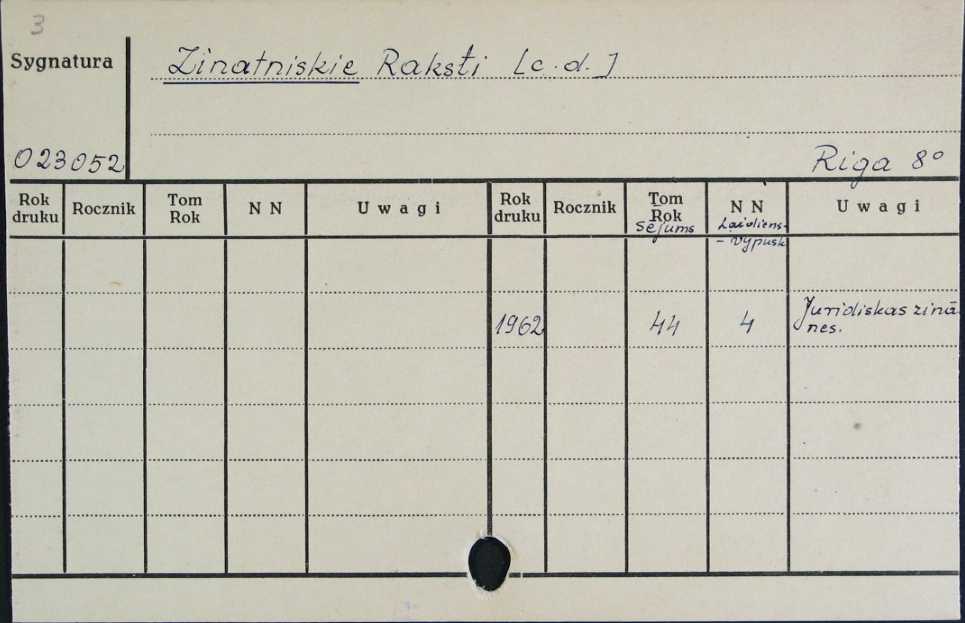 3
Sygnatura
Zinatniskie Raksti [c.d.]
023052
Riga 8°
Rok druku Rocznik Tom Rok N N Uwagi Rok druku Rocznik Tom Rok N N Uwagi
Sējums Laidiens-
- vypusk
1962 44 4 Juridiskas zinā
nes.